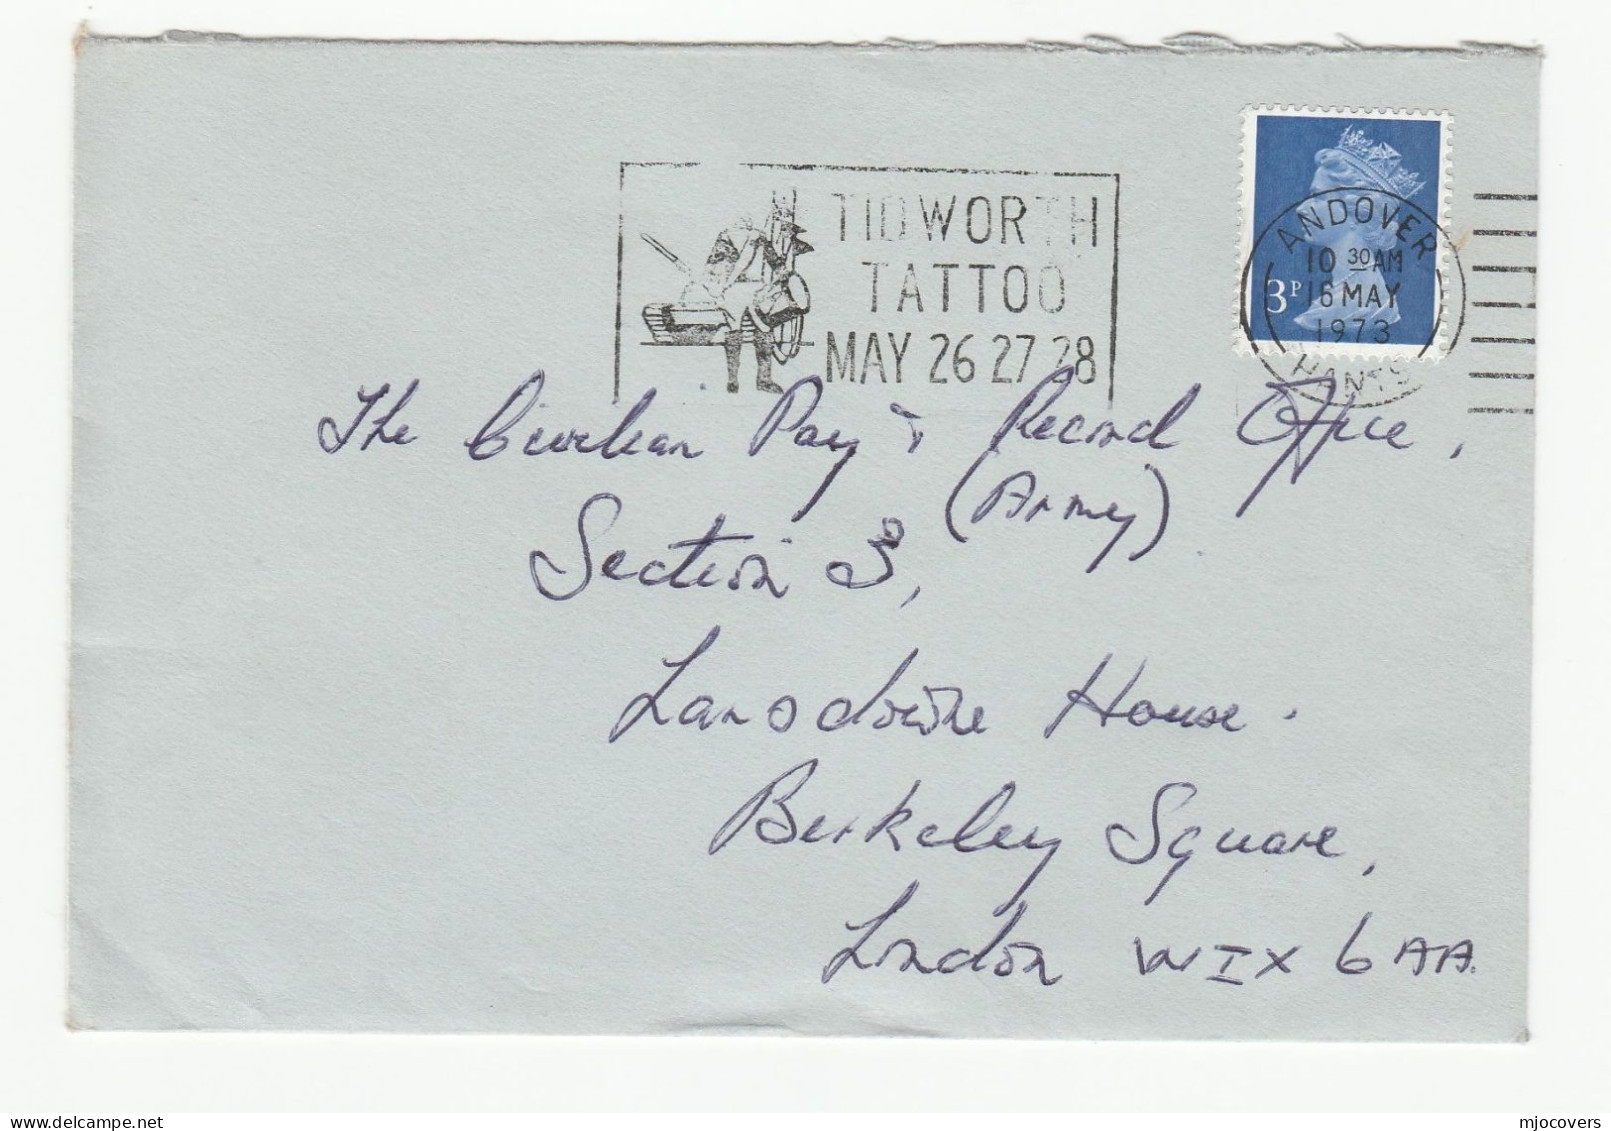 TIDWORTH
TATTOO
MAY 26 27 28
ANDOVER
10 30 AM
16 MAY
1973
HANTS
3P
The Civilian Pay & Record Office,
(Army)
Section 3,
Lansdowne House.
Berkeley Square,
London WIX 6AA.
mjocovers